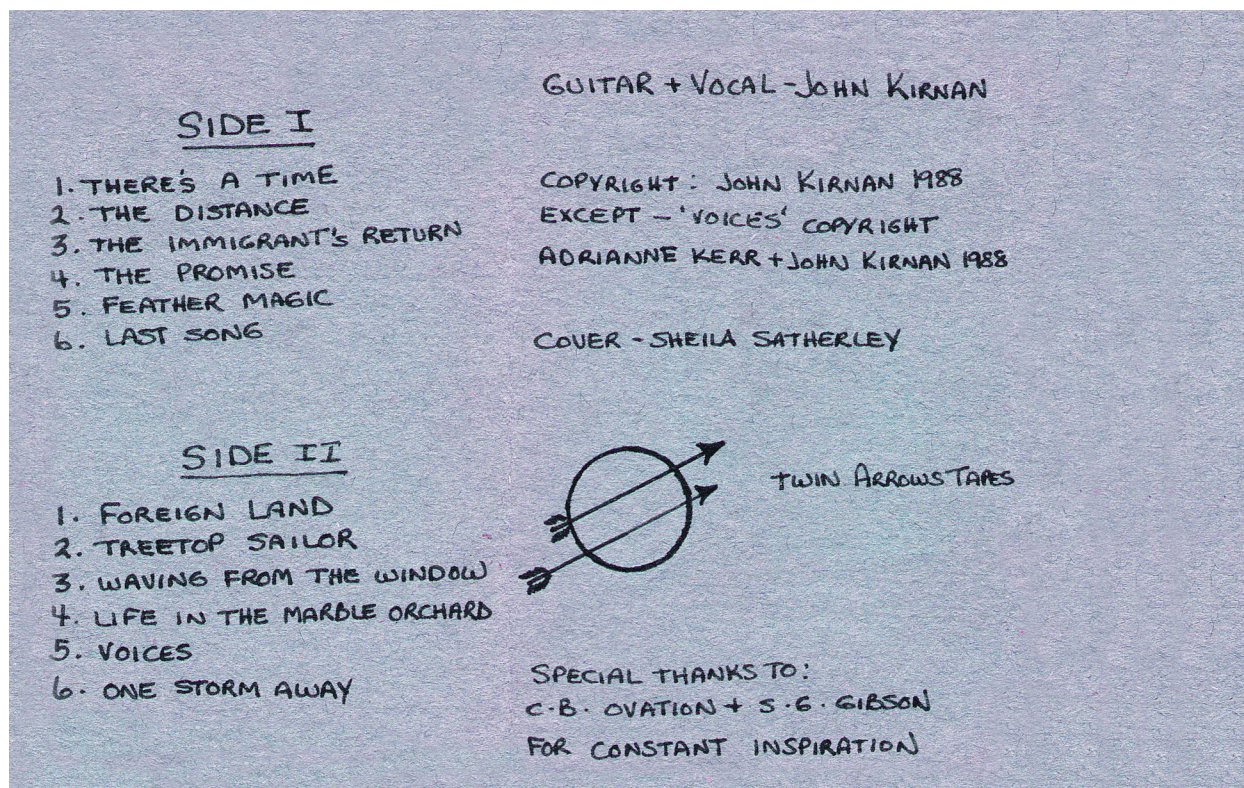 SIDE I
1. THERE'S A TIME
2. THE DISTANCE
3. THE IMMIGRANT'S RETURN
4. THE PROMISE
5. FEATHER MAGIC
6. LAST SONG
SIDE II
1. FOREIGN LAND
2. TREETOP SAILOR
3. WAVING FROM THE WINDOW
4. LIFE IN THE MARBLE ORCHARD
5. VOICES
6. ONE STORM AWAY
GUITAR + VOCAL - JOHN KIRNAN
COPYRIGHT: JOHN KIRNAN 1988
EXCEPT - 'VOICES' COPYRIGHT
ADRIANNE KERR + JOHN KIRNAN 1988
COVER - SHEILA SATHERLEY
TWIN ARROWS TAPES
SPECIAL THANKS TO:
C.B. OVATION + S.G. GIBSON
FOR CONSTANT INSPIRATION